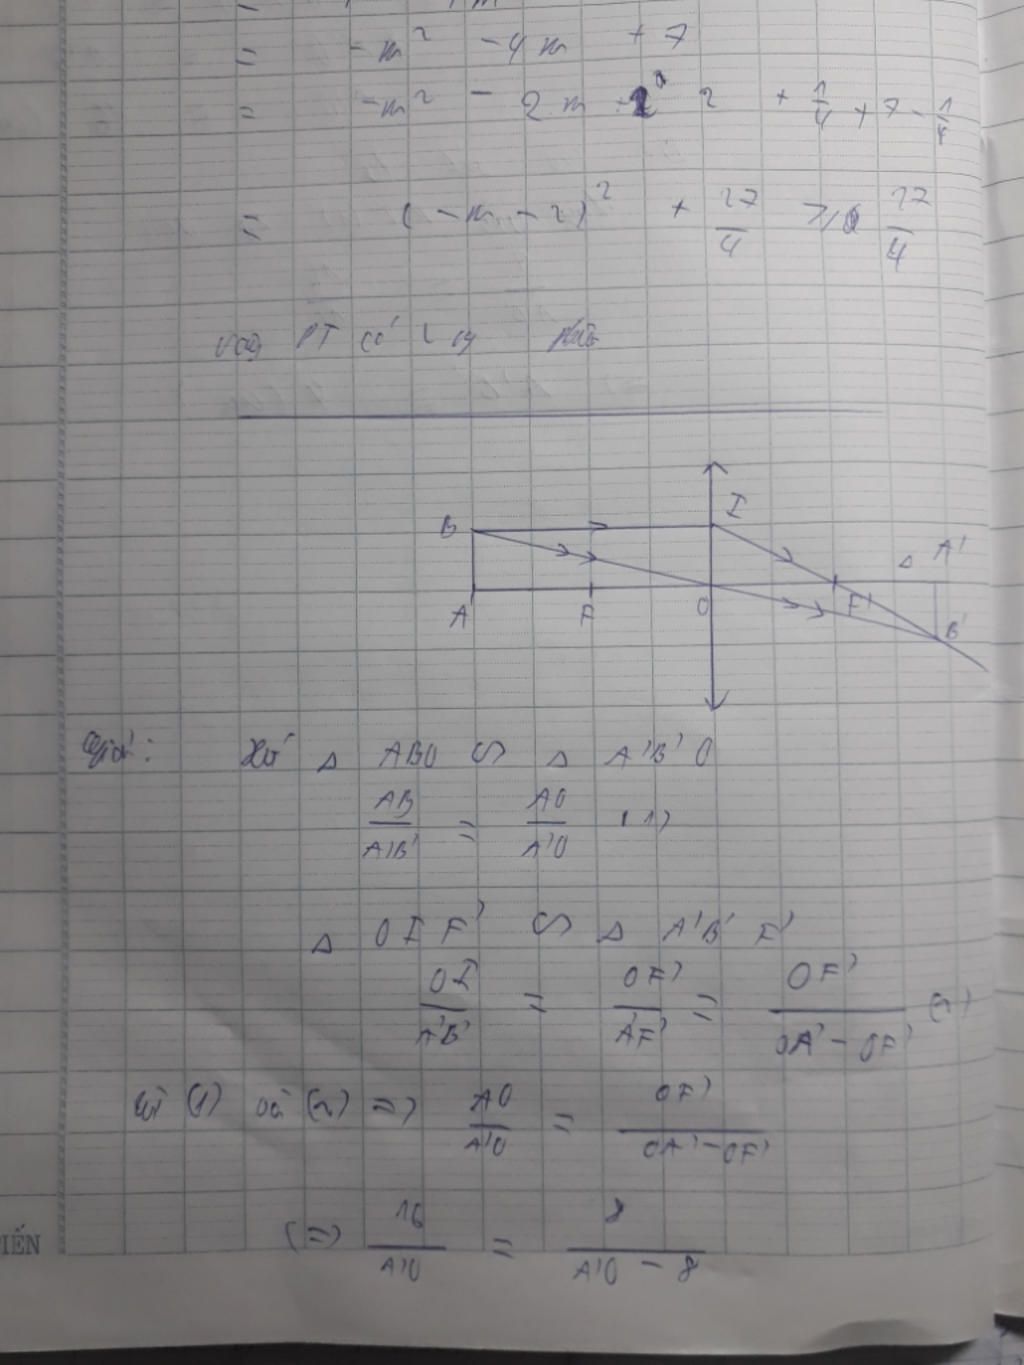 = -m² - 4m + 7
= -m² - 2m . 2 + 1/4 + 7 - 1/4
= (-m - 2)² + 27/4 ≥ 27/4
Vậy PT có
B I A'
A F O F' B'
Giải: Xét Δ ABO ∽ Δ A'B'O
AB/A'B' = AO/A'O (1)
Δ OIF' ∽ Δ A'B'F'
OI/A'B' = OF'/A'F' = OF'/OA' - OF' (2)
Từ (1) và (2) => AO/A'O = OF'/OA' - OF'
(=) 16/A'O = 8/A'O - 8
IẾN